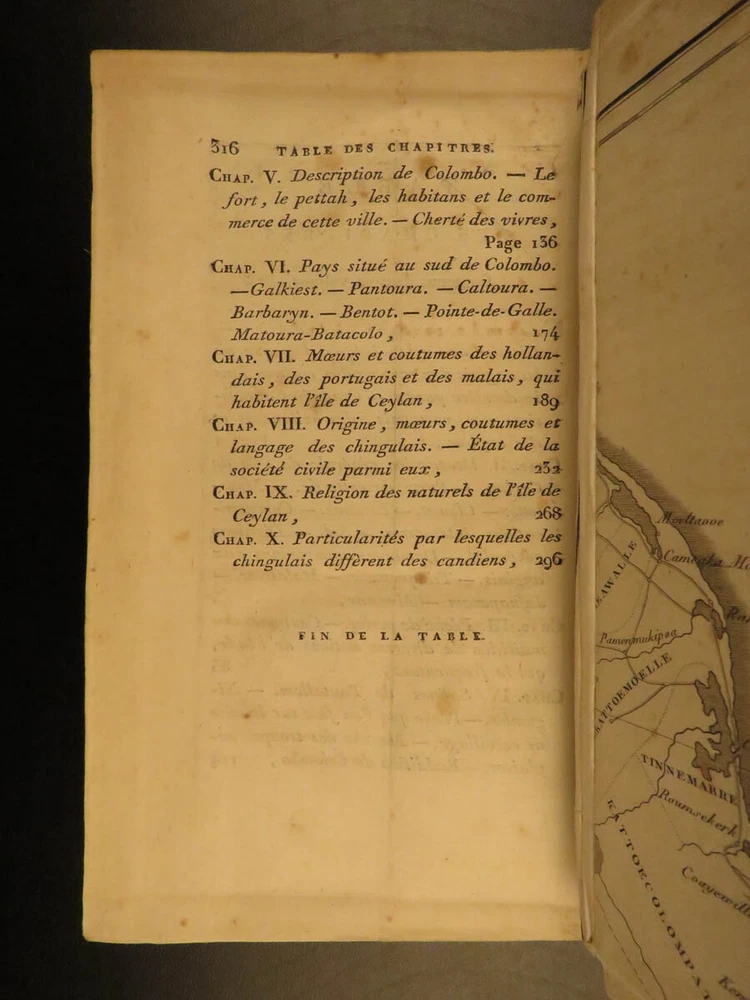 316 TABLE DES CHAPITRES.
CHAP. V. Description de Colombo. — Le
fort, le pettah, les habitans et le com-
merce de cette ville. — Cherté des vivres,
Page 136
CHAP. VI. Pays situé au sud de Colombo.
— Galkiest. — Pantoura. — Caltoura. —
Barbaryn. — Bentot. — Pointe-de-Galle.
Matoura-Batacolo, 174
CHAP. VII. Mœurs et coutumes des hollan-
dais, des portugais et des malais, qui
habitent l'île de Ceylan, 189
CHAP. VIII. Origine, mœurs, coutumes et
langage des chingulais. — État de la
société civile parmi eux, 232
CHAP. IX. Religion des naturels de l'île de
Ceylan, 268
CHAP. X. Particularités par lesquelles les
chingulais diffèrent des candiens, 296
FIN DE LA TABLE.
Moeltavoe
EAWALLE
Pamenmukipoa
KATTOEMOELLE
TINNEMARRE
Roumsekerk
KATTOECOLOMPAT